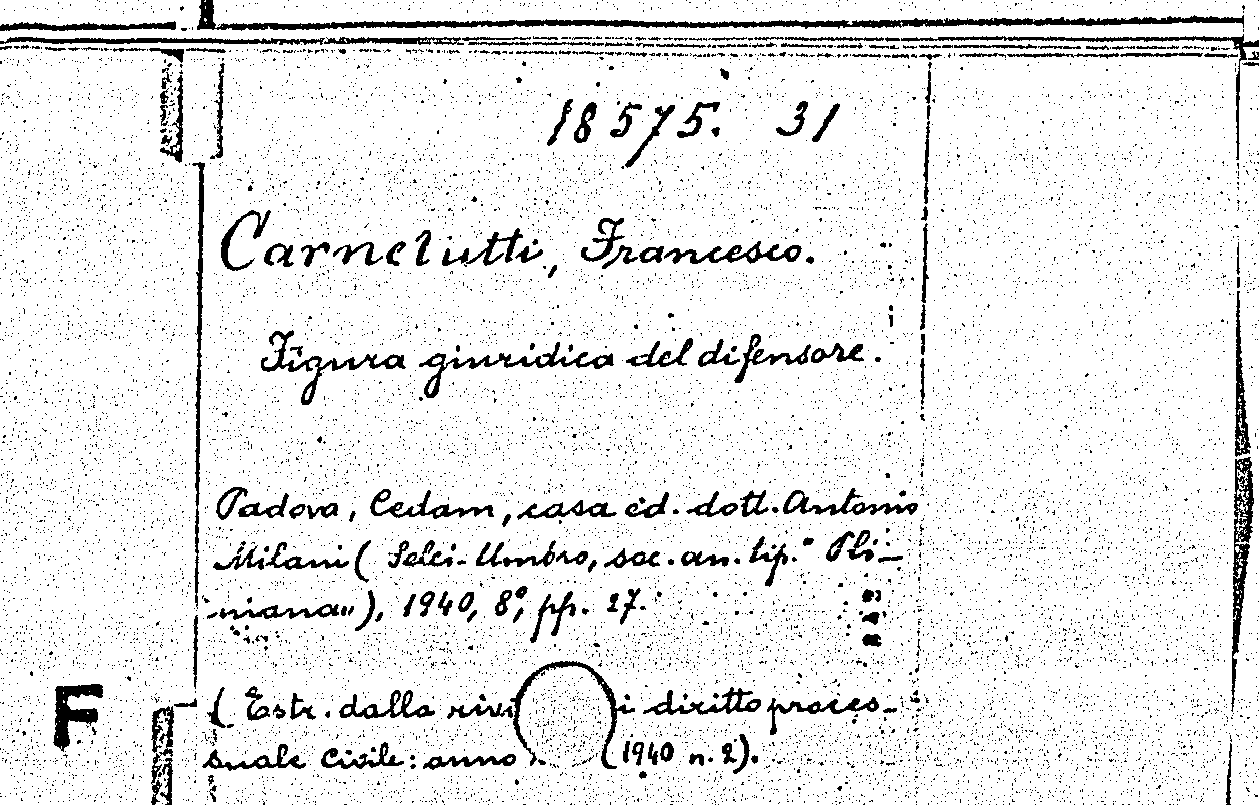 18575. 31
Carnelutti, Francesco.
Figura giuridica del difensore.
Padova, Cedam, casa ed. dott. Antonio
Milani ( Selci-Umbro, soc. an. tip. " Pli-
niana"), 1940, 8°, pp. 27.
( Estr. dalla rivi i diritto proces-
suale civile: anno (1940 n. 2).
F